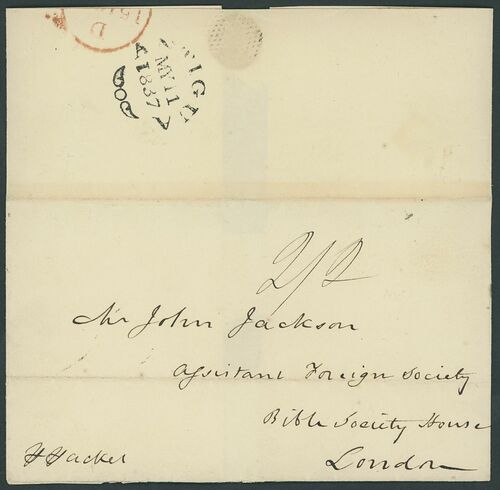 D
A
ANTIGUA
MY 11
1837
2/2
Mr John Jackson
Assistant Foreign Society
Bible Society House
London